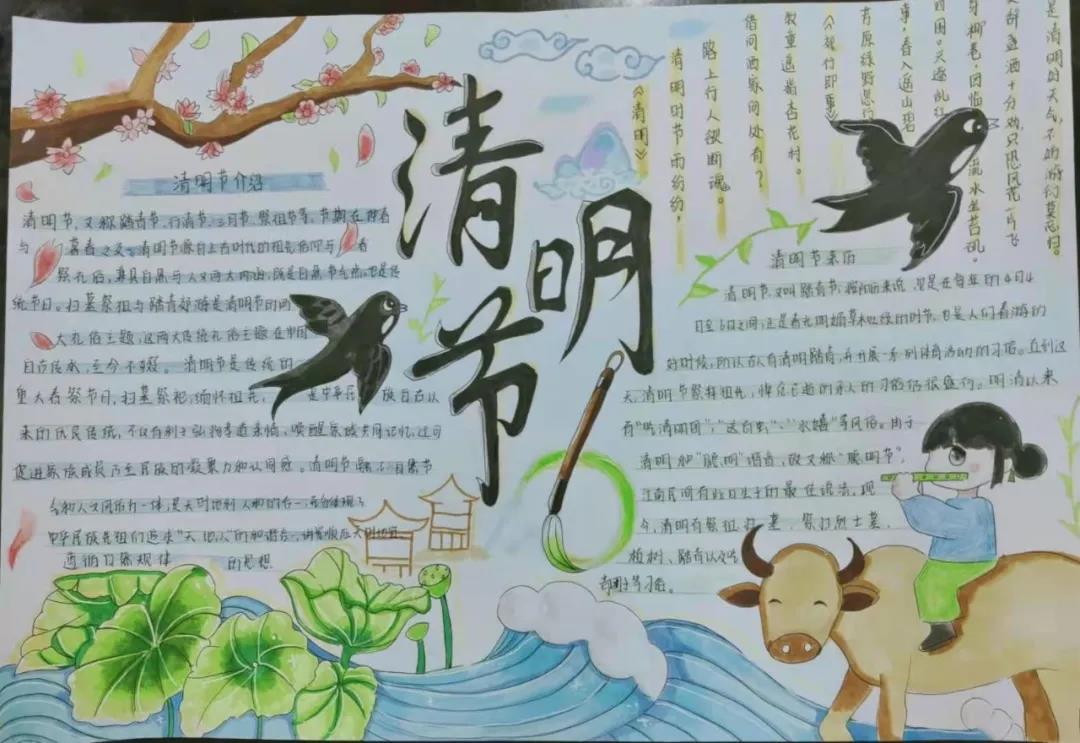 清明节
清明节介绍
清明节,又称踏青节、行清节、三月节、祭祖节等,节期在仲春
与暮春之交。清明节源自上古时代的祖先信仰与春
祭礼俗,兼具自然与人文两大内涵,既是自然节气点,也是传
统节日。扫墓祭祖与踏青郊游是清明节的两
大礼俗主题,这两大传统礼俗主题在中国
自古传承,至今不辍。清明节是传统的
重大春祭节日,扫墓祭祀、缅怀祖先,是中华民族自古以
来的优良传统,不仅有利于弘扬孝道亲情、唤醒家族共同记忆,还可
促进家族成员乃至民族的凝聚力和认同感。清明节融汇自然节
气和人文风俗为一体,是天时地利人和的合一,充分体现了
中华民族先祖们追求“天、地、人”的和谐合一,讲究顺应天时地宜、
遵循自然规律的思想
《清明》
清明时节雨纷纷,
路上行人欲断魂。
借问酒家何处有?
牧童遥指杏花村。
《
即事》
是清明时天气,不
游
莫忘归。
十分
只恐风花一片飞
流水坐苔矶。
事,春入遥山碧
清明节来历
清明节,又叫踏青节,按阳历来说,它是在每年的4月4
日至6日之间,正是春光明媚草木吐绿的时节,也是人们春游的
好时候,所以古人有清明踏青,并开展一系列体育活动的习俗。直到这
天,清明节祭拜祖先,悼念已逝的亲人的习俗仍很盛行。明清以来
有“吃清明团”、
、
等风俗。由于
清明和“聪明”谐音,故又称“聪明节”,
江南民间有此日生子的最佳说法,现
今,清明有祭祖扫墓、祭扫烈士墓、
植树、踏青
等习俗。